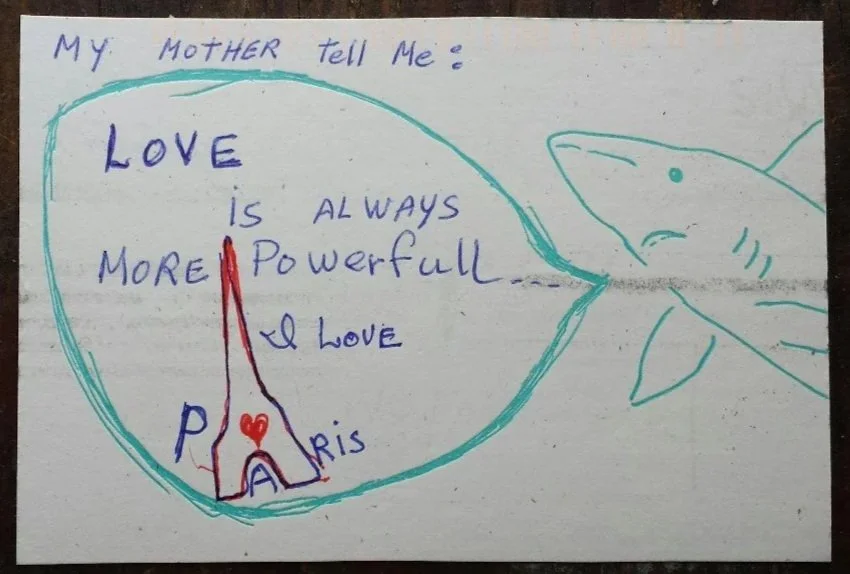 MY MOTHER tell Me:
LOVE
IS ALWAYS
MORE Powerfull...
I LOVE
PARIS